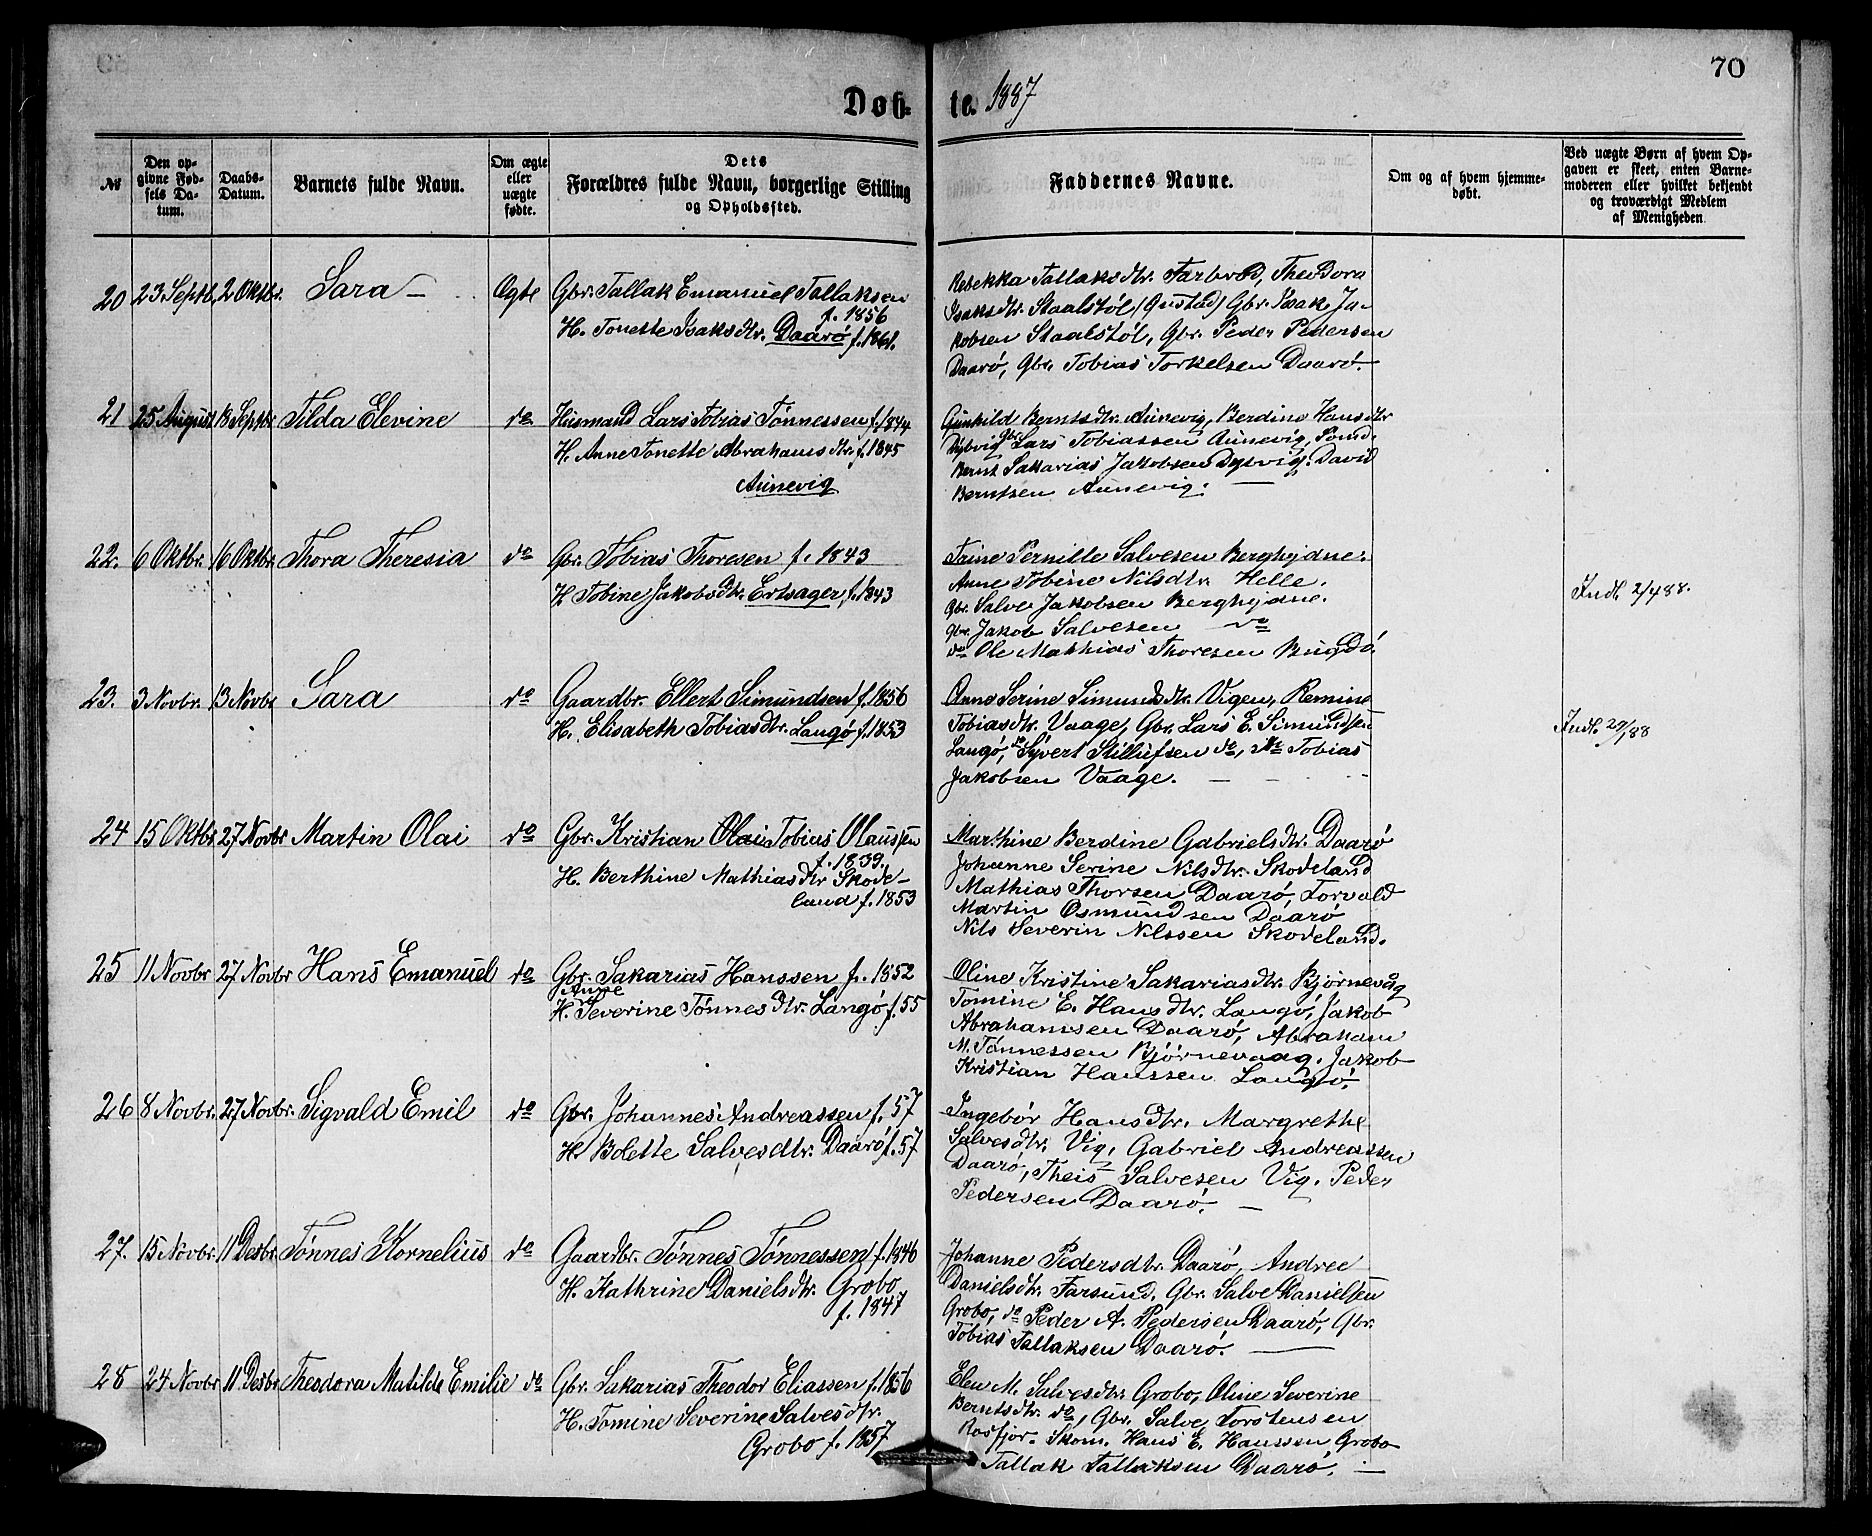 70
Døb- te. 1887
№
Den op-
givne Fød-
sels Da-
tum.
Daabs-
Datum.
Barnets fulde Navn.
Om ægte
eller
uægte
fødte.
Dets
Forældres fulde Navn, borgerlige Stilling
og Opholdssted.
Faddernes Navne.
Om og af hvem hjemme-
døbt.
Ved uægte Børn af hvem Op-
gaven er skeet, enten Barne-
moderen eller hvilket bekjendt
og troværdigt Medlem
af Menigheden.
20 23 Septb. 2 Oktbr. Sara – Ægte Gbr. Tallak Emanuel Tallaksen
f. 1856
H. Tonette Isaksdtr. Daarø f. 1861.
Rebekka Tallaksdtr. Farbrod, Theodora
Isaksdtr. Staalstøl (Onstad) Gbr. Isak Ja-
kobsen Staalstøl, Gbr. Peder Pedersen
Daarø, Gbr. Tobias Torkelsen Daarø.
21 25 August 18 Septbr Tilda Elevine do Husmand Lars Tobias Tønnessen f. 1844
H. Anne Tonette Abrahamsdtr. f. 1845
Aunevig
Gunhild Berntsdtr. Aunevig, Berdine Hansdtr
Dybvig Gbr. Lars Tobiassen Aunevig,
Bernt Sakarias Jakobsen Dybvig. David
Berntsen Aunevig.
22. 6 Oktbr. 16 Oktbr. Thora Theresia do Gbr. Tobias Thoresen f. 1843
H. Tobine Jakobsdtr. Ertsager f. 1843
Trine Pernille Salvesen Berghydne.
Anne Tobine Nilsdtr. Helle.
Gbr. Salve Jakobsen Berghydne.
Gbr. Jakob Salvesen do
do Ole Mathias Thoresen Bugdø
Indt. 2/4 88.
23. 3 Novbr. 13 Novbr Sara do Gaardbr. Ellert Simundsen f. 1856
H. Elisabeth Tobiasdtr. Langø f. 1853
Anne Serine Simundsdtr. Vigen, Remine
Tobiasdtr. Vaage, Gbr. Lars E. Simundsen
Langø, do Syvert Stillufsen do, do Tobias
Jakobsen Vaage.
Indt. 29/88
24 15 Oktbr 27 Novbr Martin Olai do Gbr. Kristian Olai Tobias Olaussen
f. 1839.
H. Berthine Mathiasdtr Skode-
land f. 1853
Marthine Berdine Gabrielsdtr. Daarø
Johanne Serine Nilsdtr. Skodeland
Mathias Thorsen Daarø, Torvald
Martin Osmundsen Daarø
Nils Severin Nilssen Skodeland.
25 11 Novbr 27 Novbr Hans Emanuel do Gbr. Sakarias Hanssen f. 1852
Anne
H. Severine Tønnesdtr. Langø f. 55
Oline Kristine Sakariasdtr. Bjørnevåg
Tomine E. Hansdtr. Langø, Jakob
Abrahamsen Daarø, Abraham
M. Tønnessen Bjørnevaag. Jakob
Kristian Hanssen Langø.
26 8 Novbr. 27 Novbr. Sigvald Emil do Gbr. Johannes Andreassen f. 57
H. Bolette Salvesdtr. Daarø f. 57
Ingebor Hansdtr. Margrethe
Salvesdtr. Vig, Gabriel Andreassen
Daarø, Theis Salvesen Vig. Peder
Pedersen Daarø.
27. 15 Novbr. 11 Desbr Tønnes Kornelius do Gaardbr. Tønnes Tønnessen f. 1846
H. Kathrine Danielsdtr. Grobo
f. 1847
Johanne Pedersdtr. Daarø, Andree
Danielsdtr. Farsund, Gbr. Salve Danielsen
Grobo, do Peder A. Pedersen Daarø, Gbr.
Tobias Tallaksen Daarø.
28 24 Novbr 11 Desbr Theodora Matilde Emilie do Gbr. Sakarias Theodor Eliassen f. 1856
H. Tomine Severine Salvesdtr.
Grobo f. 1857
Elen M. Salvesdtr. Grobo, Oline Severine
Berntsdtr. do, Gbr. Salve Torstensen
Rosfjor. Skom. Hans E. Hanssen Grobo
Tallak Tallaksen Daarø.